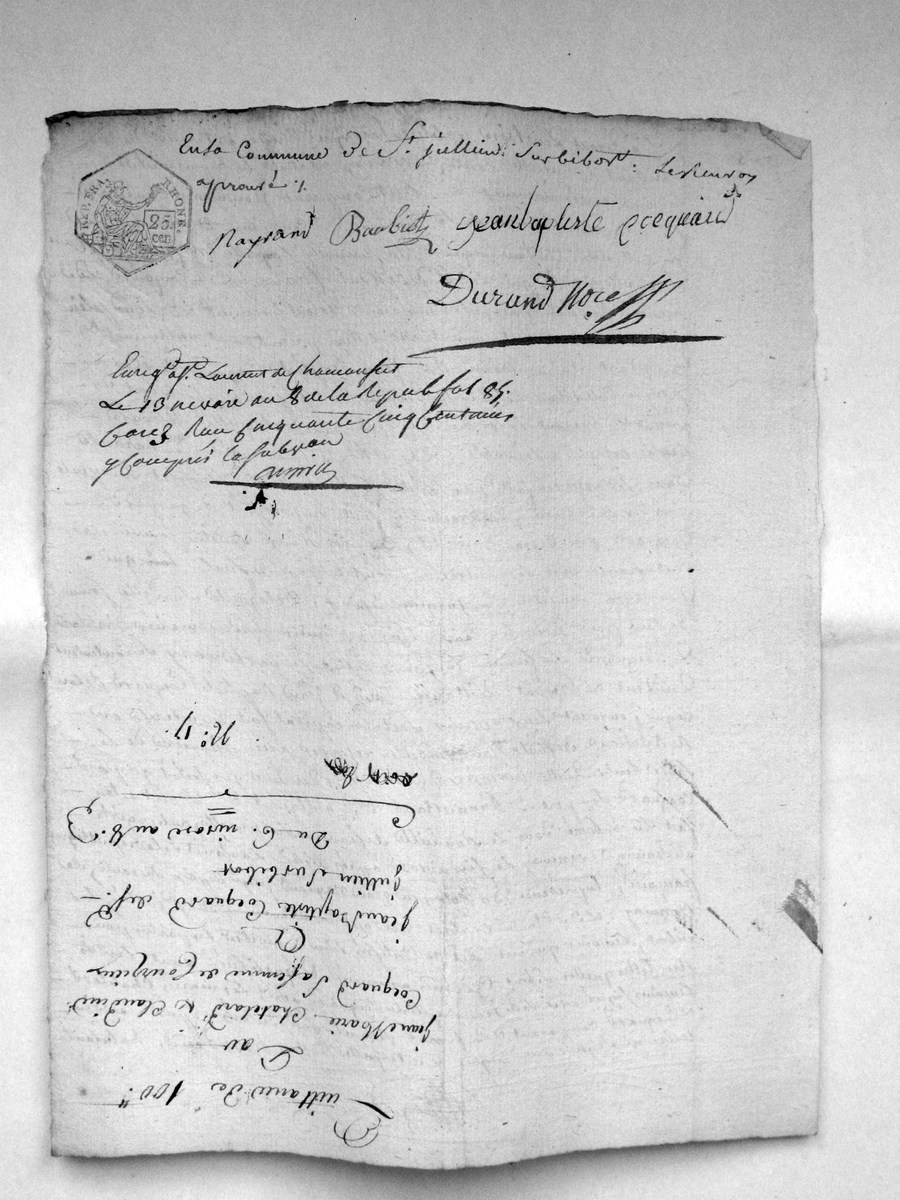 En la Commune de St. jullien Surbibost. Le Renvoy
aprouvé /.
REP. FRA. RHONE.
25
cen
Nayrand Baubiet jeanbaptiste Cocquard
Durand Nore
Enregé a St. Laurent de Chamousset
Le 13 nivose an 8 de la Repub. fol 85.
Recu Cinquante Cinq Centimes
y Compris la Subvon
Quittance de 100 ll
Par
jean Marie Chatelard & Claudine
Cocquard Sa femme de Courzieu
A
jean Baptiste Cocquard de St.
jullien Surbibost
Du 6. nivose an 8.
N°. 17.